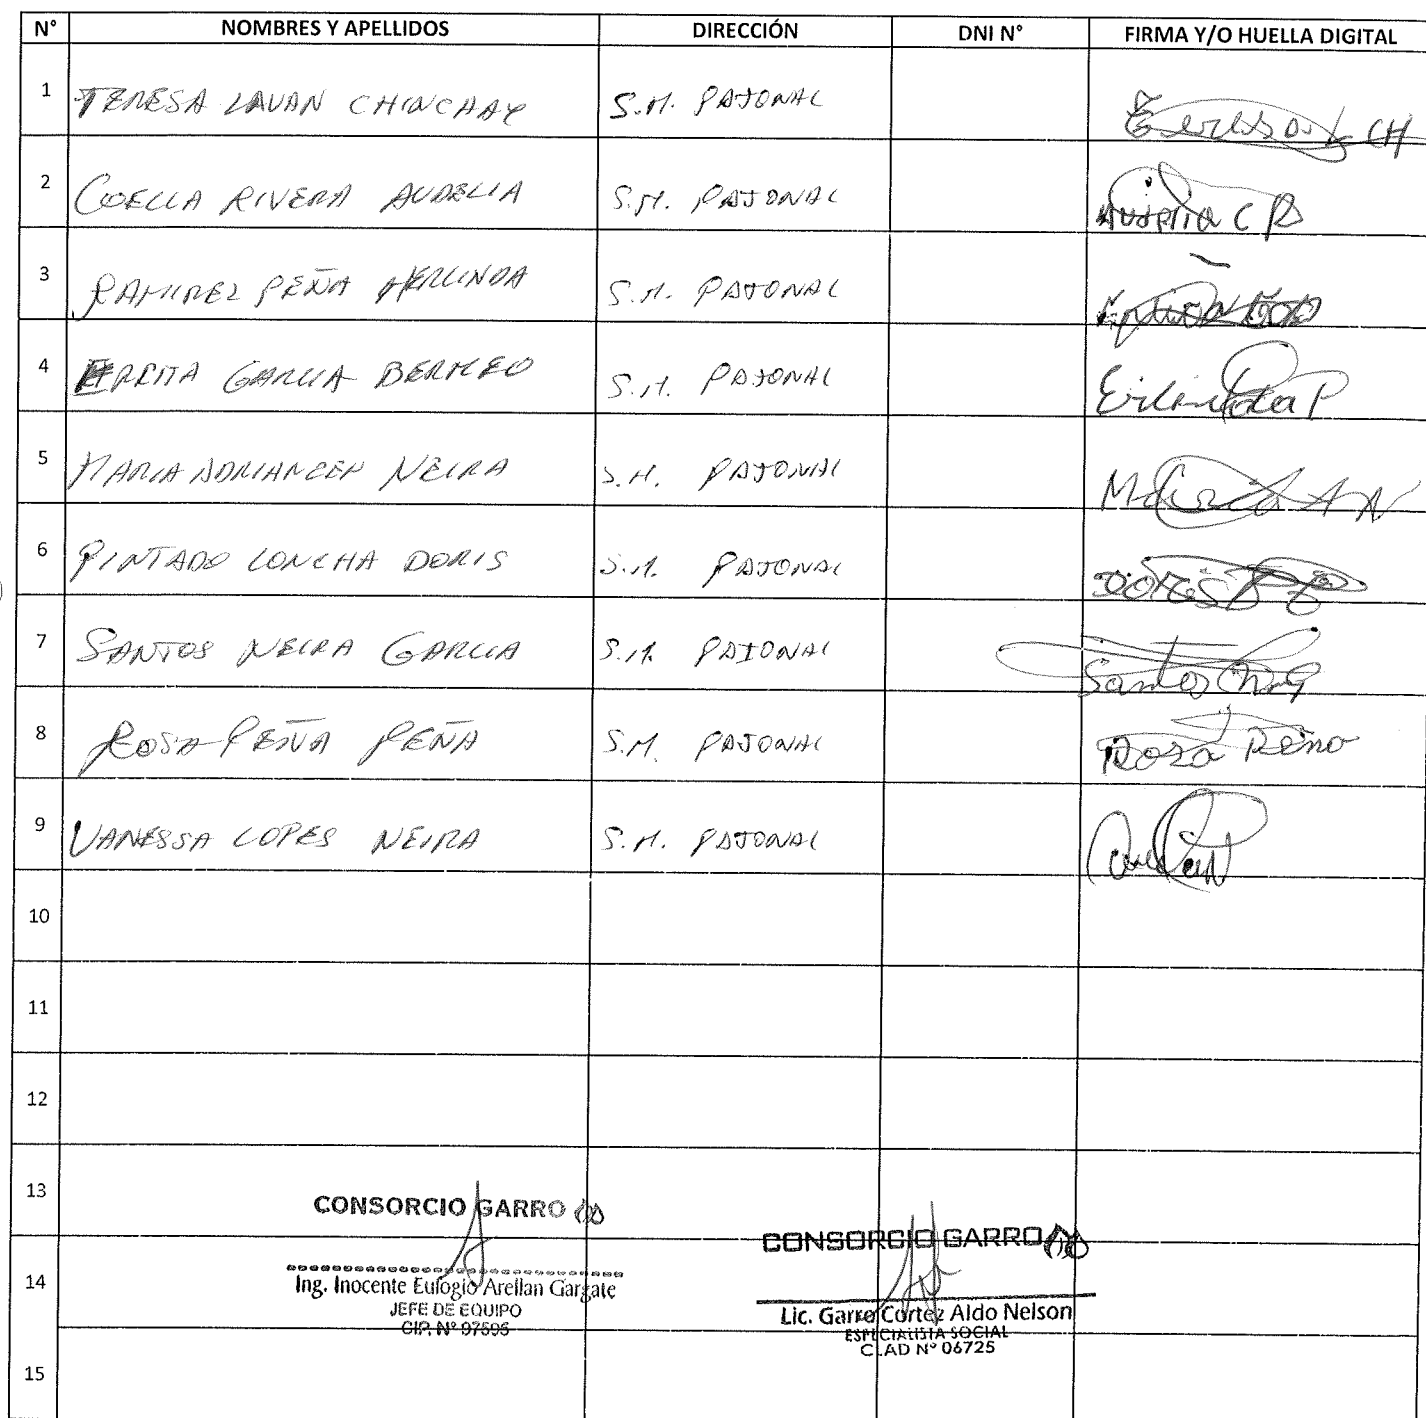 N° NOMBRES Y APELLIDOS DIRECCIÓN DNI N° FIRMA Y/O HUELLA DIGITAL
1 TERESA LAVAN CHINCHAY S.M. PAJONAL Teresa L CH
2 COELLA RIVERA AURELIA S.M. PAJONAL Aurelia C R
3 RAMIREZ PEÑA HERLINDA S.M. PAJONAL
4 GARCIA BERMEO S.M. PAJONAL
5 MARIA ADRIANZEN NEIRA S.M. PAJONAL Maria A N
6 PINTADO CONCHA DORIS S.M. PAJONAL DORIS
7 SANTOS NEIRA GARCIA S.M. PAJONAL Santos
8 ROSA PEÑA PEÑA S.M. PAJONAL Rosa Peña
9 VANESSA LOPES NEIRA S.M. PAJONAL
10
11
12
13
CONSORCIO GARRO
CONSORCIO GARRO
14
Ing. Inocente Eulogio Arellan Gargate
JEFE DE EQUIPO
CIP. N° 97595
Lic. Garro Cortez Aldo Nelson
ESPECIALISTA SOCIAL
CLAD N° 06725
15